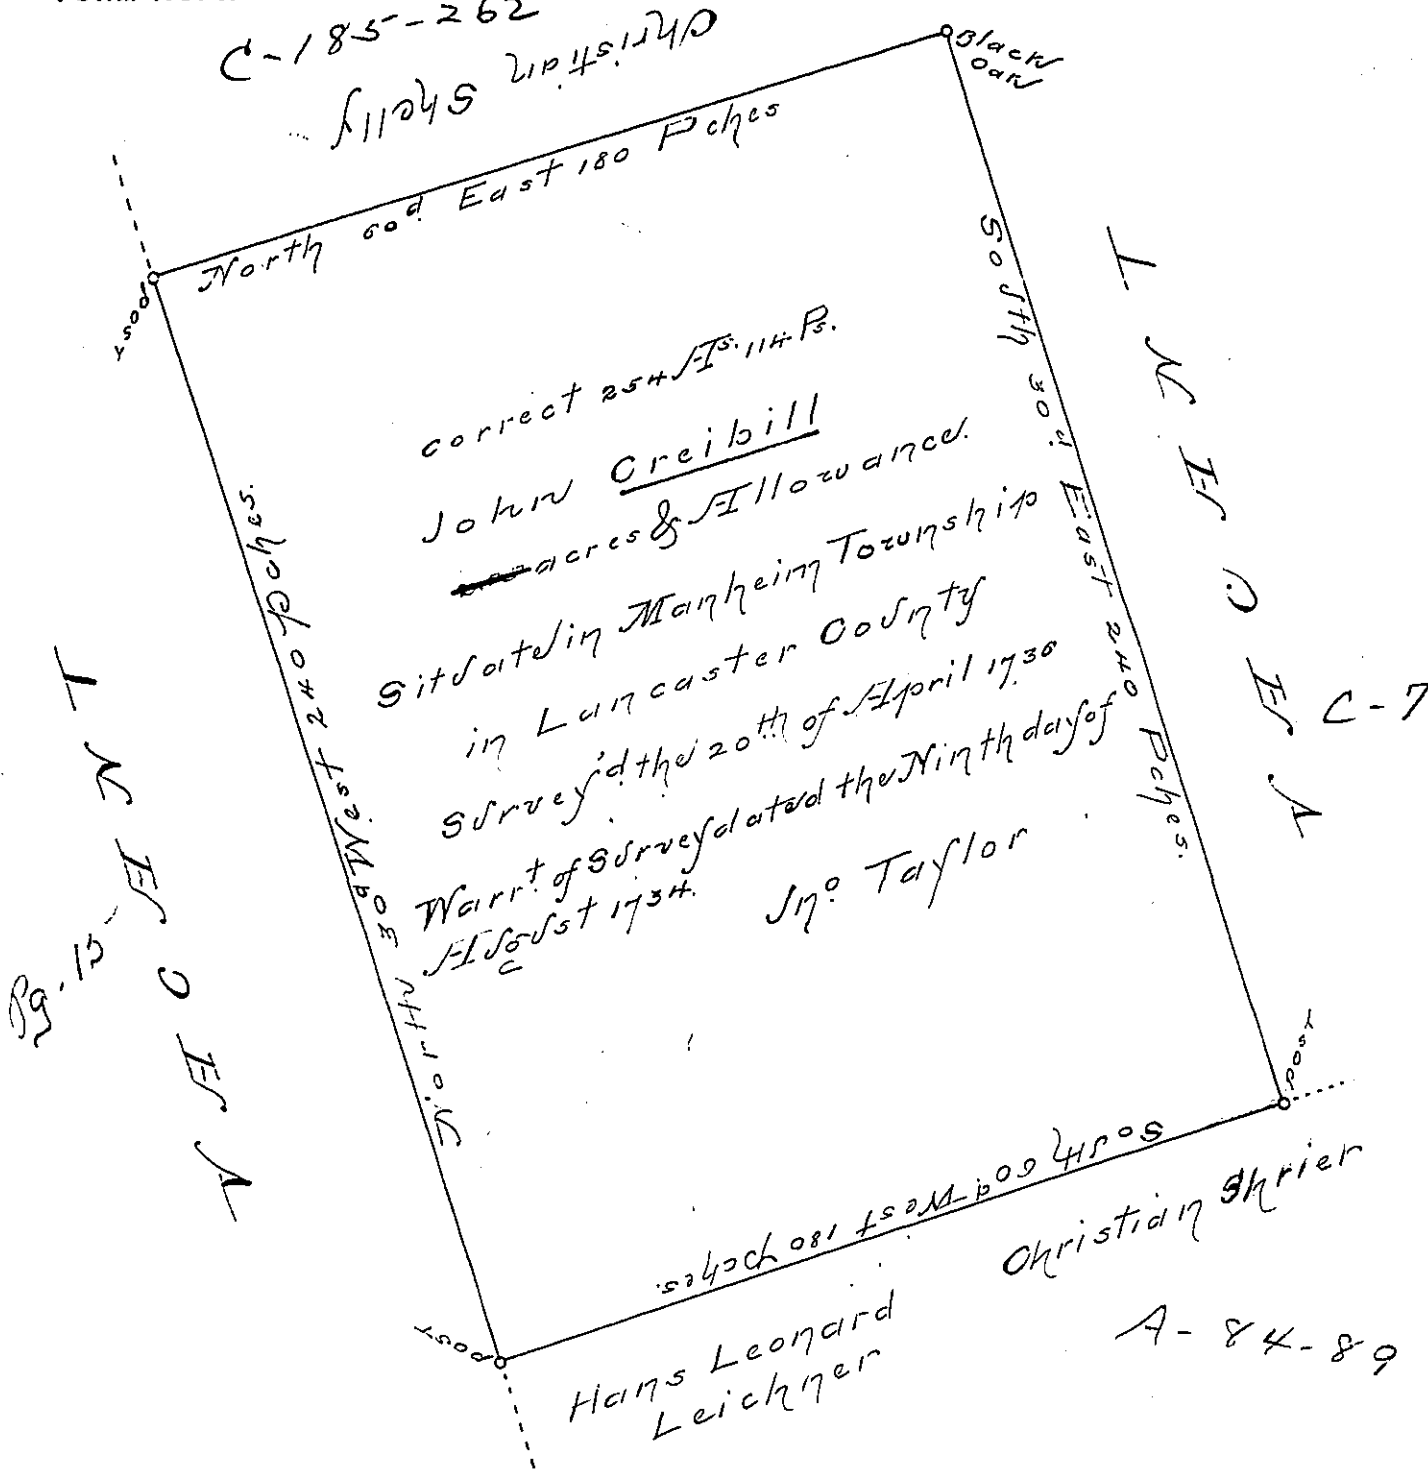 C-185-262
Christian Shelly
Black
Oak
North 60d. East 180 Pches
Post
South 30d. East 240 Pches.
VACENT
C-7
correct 254 As. 114 Ps.
John Creibill
acres & Allowance.
Situate in Manheim Township
in Lancaster County
Survey'd the 20th of April 1736
Warrt. of Survey dated the Ninth day of
August 1734.
Jno. Taylor
North 30d West 240 Pches.
VACENT
Pg. 15
Post
South 60d. West 180 Pches.
Post
Christian Shrier
Hans Leonard
Leichner
A-84-89